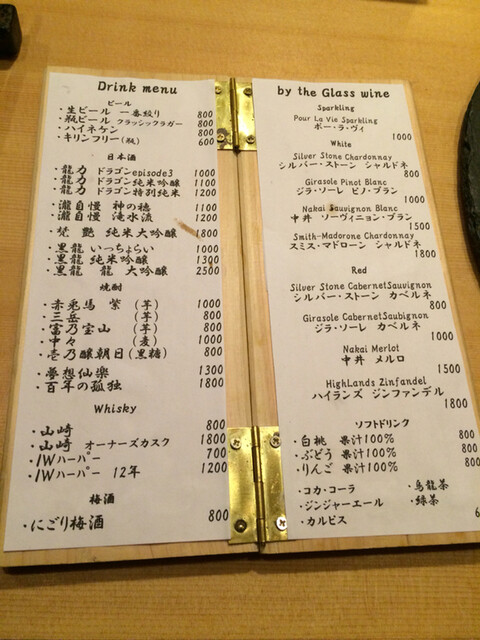 Drink menu
ビール
・生ビール 一番絞り 800
・瓶ビール クラッシックラガー 800
・ハイネケン 800
・キリンフリー(瓶) 600
日本酒
・龍力 ドラゴンepisode3 1000
・龍力 ドラゴン純米吟醸 1100
・龍力 ドラゴン特別純米 1200
・瀧自慢 神の穂 1100
・瀧自慢 滝水流 1200
・梵 艶 純米大吟醸 1800
・黒龍 いっちょらい 1000
・黒龍 純米吟醸 1300
・黒龍 龍 大吟醸 2500
焼酎
・赤兎馬 紫 (芋) 1000
・三岳 (芋) 800
・富乃宝山 (芋) 800
・中々 (麦) 1000
・壱乃醸朝日(黒糖) 800
・夢想仙楽 1300
・百年の孤独 1800
Whisky
・山崎 800
・山崎 オーナーズカスク 1800
・IWハーパー 700
・IWハーパー 12年 1200
梅酒
・にごり梅酒 800
by the Glass wine
Sparkling
Pour La Vie Sparkling
ポー・ラ・ヴィ 1000
White
Silver Stone Chardonnay
シルバー・ストーン シャルドネ 800
Girasole Pinot Blanc
ジラ・ソーレ ピノ・ブラン 1000
Nakai Sauvignon Blanc
中井 ソーヴィニョン・ブラン 1500
Smith-Madorone Chardonnay
スミス・マドローン シャルドネ 1800
Red
Silver Stone CabernetSauvignon
シルバー・ストーン カベルネ 800
Girasole CabernetSaubignon
ジラ・ソーレ カベルネ 1000
Nakai Merlot
中井 メルロ 1500
HighLands Zinfandel
ハイランズ ジンファンデル 1800
ソフトドリンク
・白桃 果汁100% 800
・ぶどう 果汁100% 800
・りんご 果汁100% 800
・コカ・コーラ ・烏龍茶
・ジンジャーエール ・緑茶
・カルピス 6